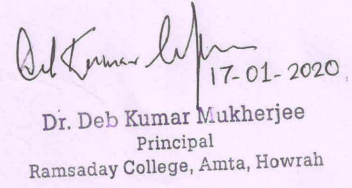 17-01-2020
Dr. Deb Kumar Mukherjee
Principal
Ramsaday College, Amta, Howrah